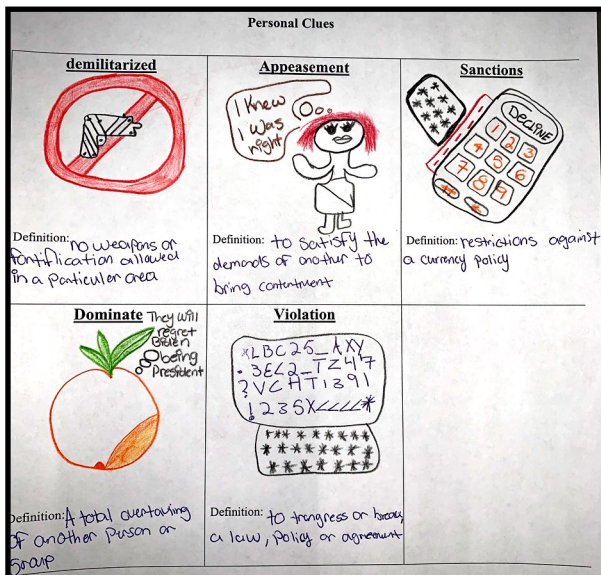 Personal Clues
demilitarized
Definition: no weapons or
fontification allowed
in a particuler area
Appeasement
I Knew
I was
right
Definition: to satisfy the
demands of another to
bring contentment
Sanctions
DECLINE
1 2 3
4 5 6
7 8 9
* *
Definition: restrictions against
a currency policy
Dominate
They will
regret
Biden
being
President
Definition: A total overtaking
of another person or
group
Violation
*LBC25_AXY
. 3EL2_TZ47
? VCHTI391
! 235X<<<<*
Definition: to trangress or break
a law, policy or agreement